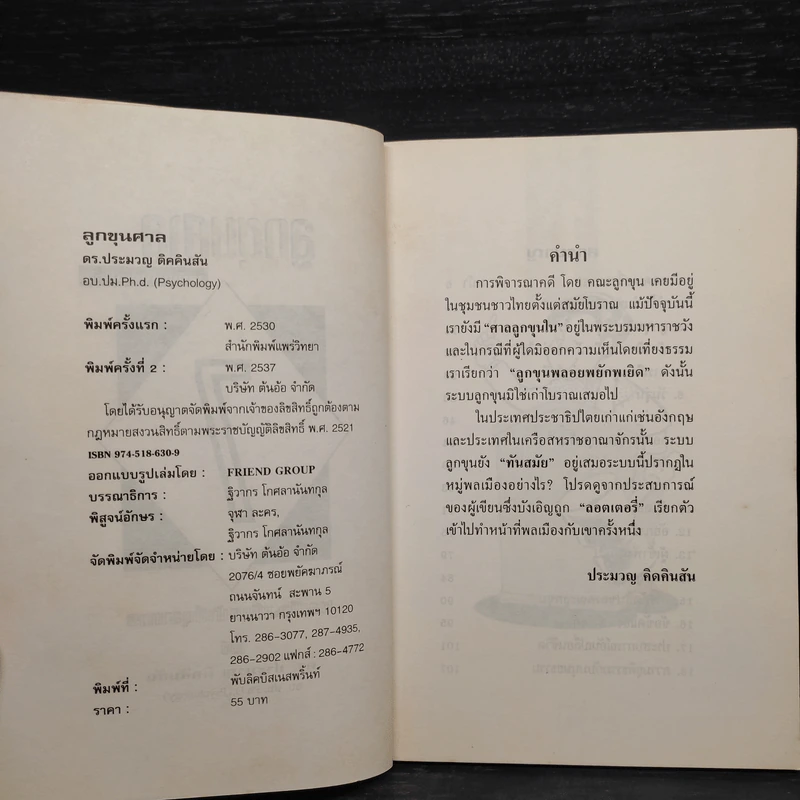 ลูกขุนศาล
ดร.ประมวญ ดิคคินสัน
อบ.ปม.Ph.d. (Psychology)
พิมพ์ครั้งแรก : พ.ศ. 2530
สำนักพิมพ์แพร่วิทยา
พิมพ์ครั้งที่ 2 : พ.ศ. 2537
บริษัท ต้นอ้อ จำกัด
โดยได้รับอนุญาตจัดพิมพ์จากเจ้าของลิขสิทธิ์ถูกต้องตาม
กฎหมายสงวนสิทธิ์ตามพระราชบัญญัติลิขสิทธิ์ พ.ศ. 2521
ISBN 974-518-630-9
ออกแบบรูปเล่มโดย : FRIEND GROUP
บรรณาธิการ : ฐิวากร โกศลานันทกุล
พิสูจน์อักษร : จุฬา ละคร,
ฐิวากร โกศลานันทกุล
จัดพิมพ์จัดจำหน่ายโดย : บริษัท ต้นอ้อ จำกัด
2076/4 ซอยพยัคฆาภรณ์
ถนนจันทน์ สะพาน 5
ยานนาวา กรุงเทพฯ 10120
โทร. 286-3077, 287-4935,
286-2902 แฟกส์ : 286-4772
พิมพ์ที่ : พับลิคบิสเนสพริ้นท์
ราคา : 55 บาท
คำนำ
การพิจารณาคดี โดย คณะลูกขุน เคยมีอยู่
ในชุมชนชาวไทยตั้งแต่สมัยโบราณ แม้ปัจจุบันนี้
เรายังมี “ศาลลูกขุนใน” อยู่ในพระบรมมหาราชวัง
และในกรณีที่ผู้ใดมิออกความเห็นโดยเที่ยงธรรม
เราเรียกว่า “ลูกขุนพลอยพยักพเยิด” ดังนั้น
ระบบลูกขุนมิใช่เก่าโบราณเสมอไป
ในประเทศประชาธิปไตยเก่าแก่เช่นอังกฤษ
และประเทศในเครือสหราชอาณาจักรนั้น ระบบ
ลูกขุนยัง “ทันสมัย” อยู่เสมอระบบนี้ปรากฏใน
หมู่พลเมืองอย่างไร? โปรดดูจากประสบการณ์
ของผู้เขียนซึ่งบังเอิญถูก “ลอตเตอรี่” เรียกตัว
เข้าไปทำหน้าที่พลเมืองกับเขาครั้งหนึ่ง
ประมวญ คิดคินสัน